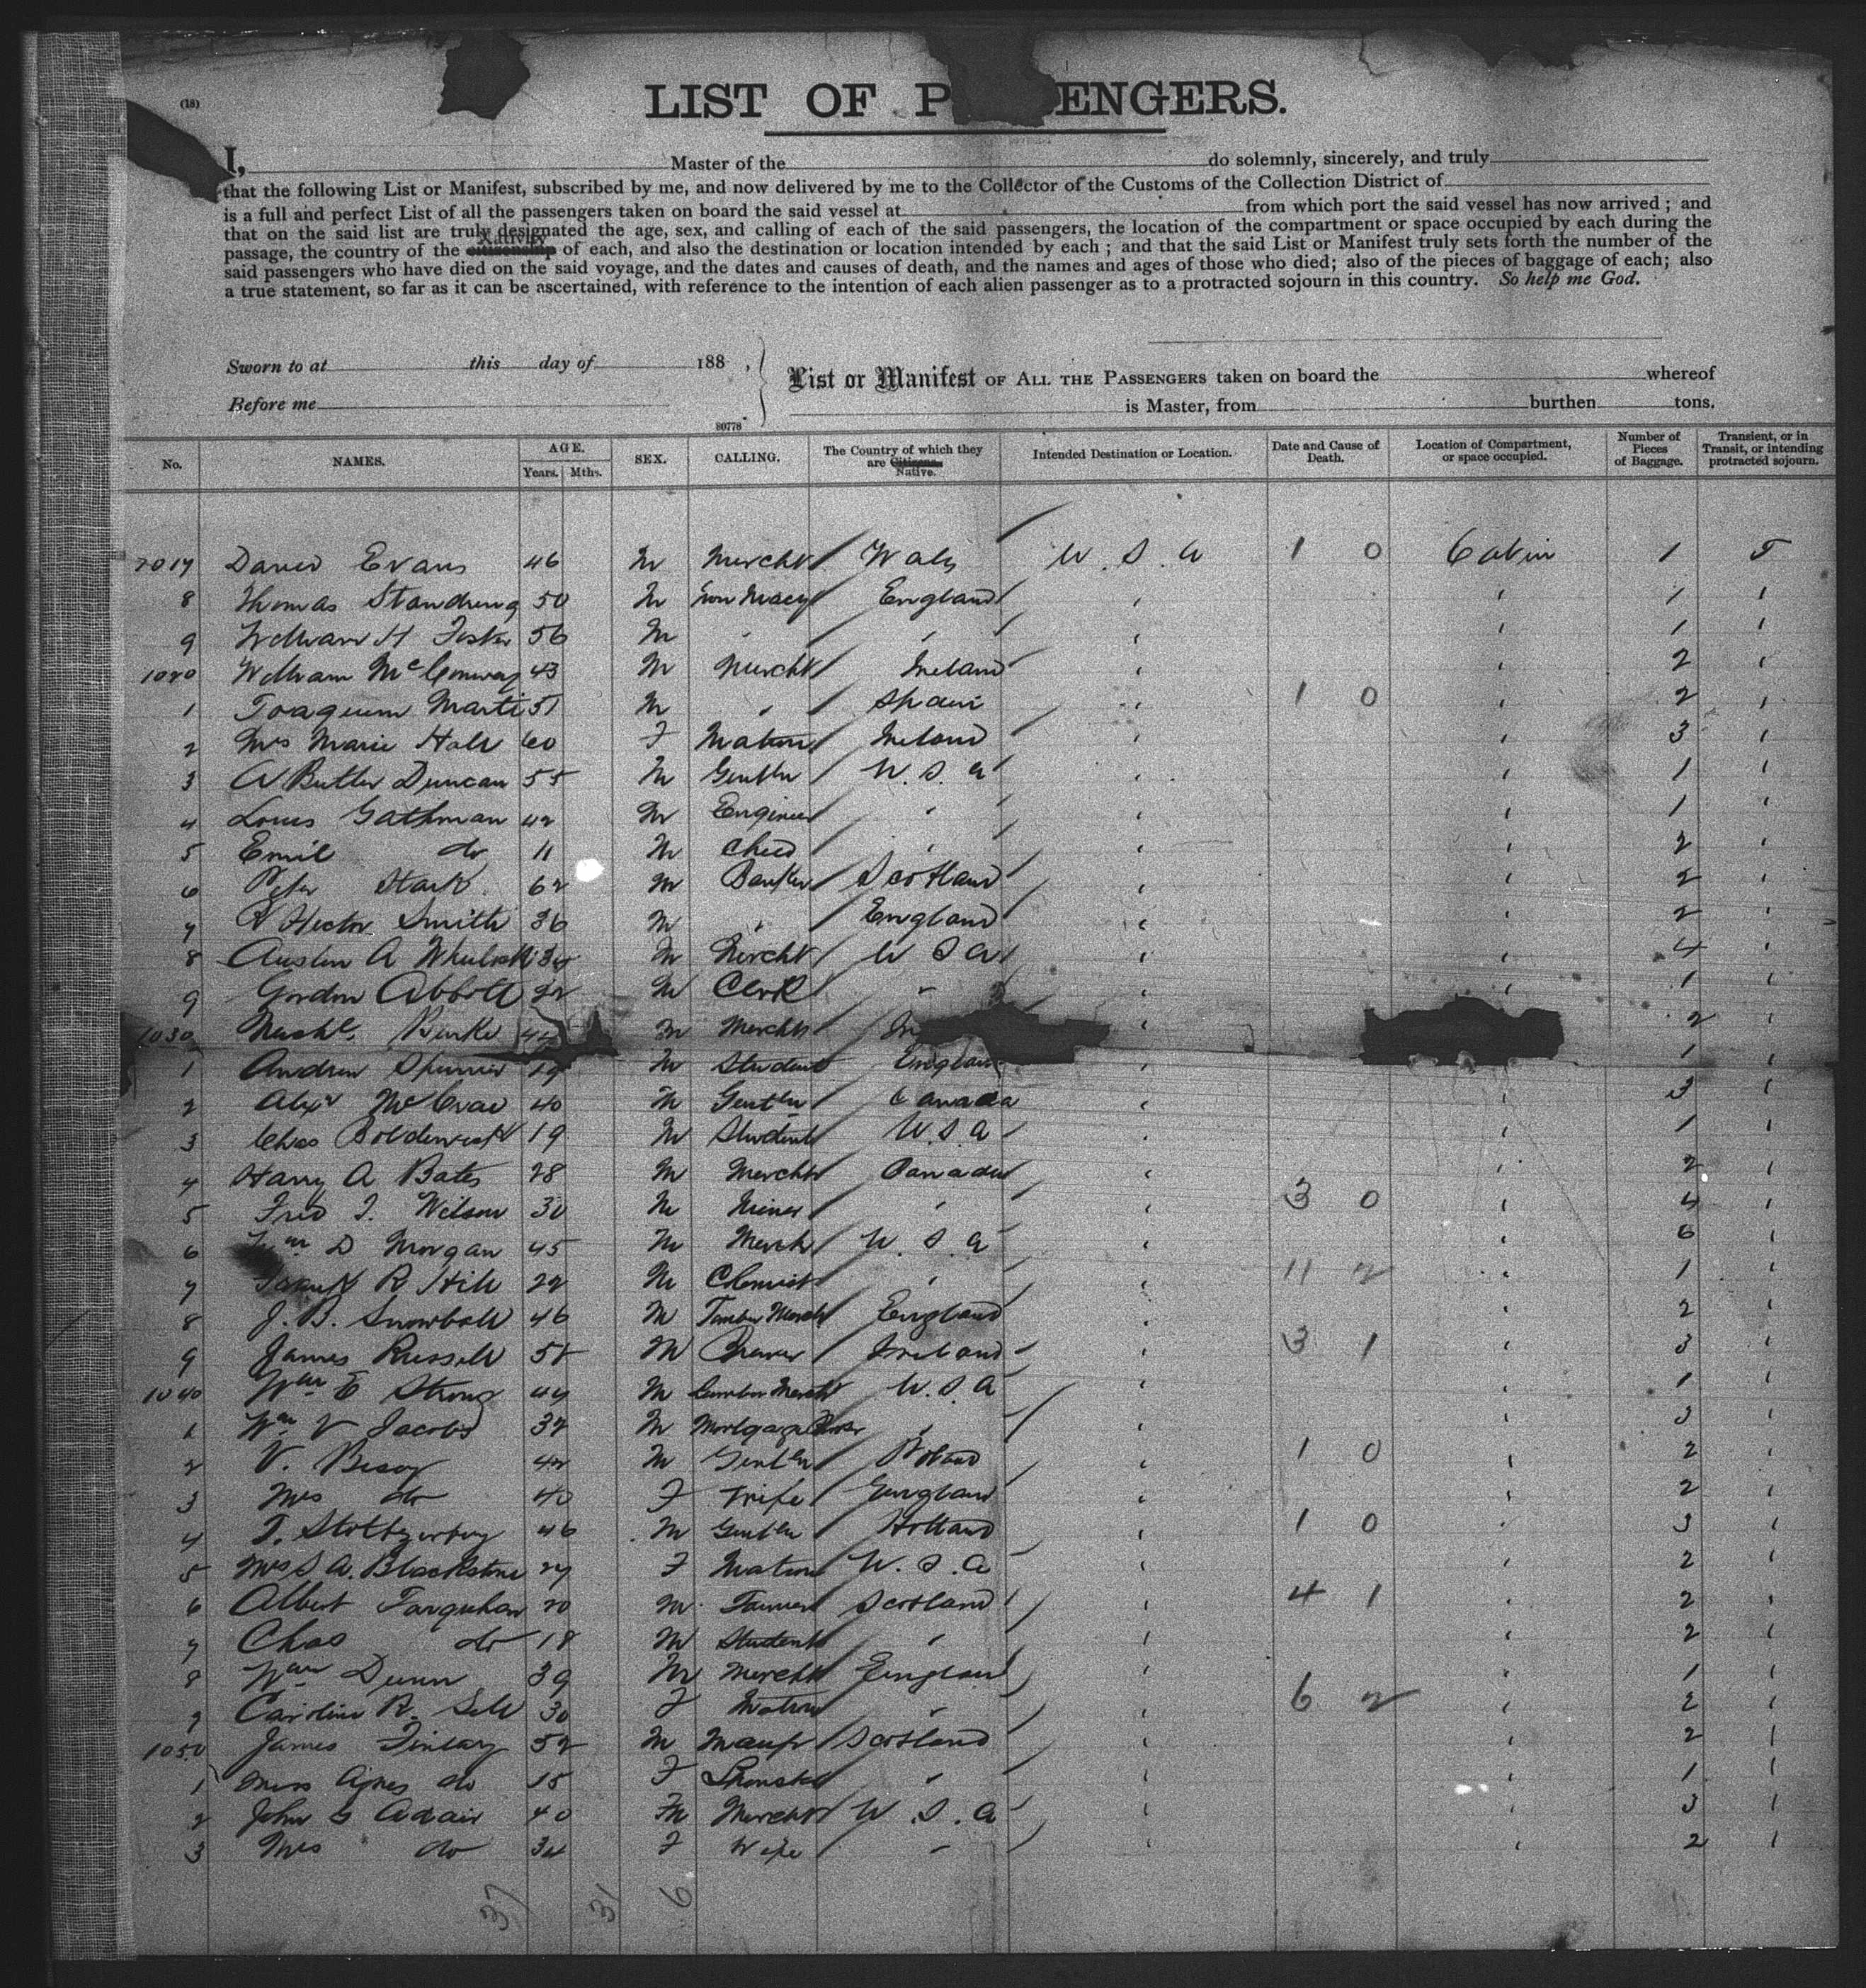 (18)
LIST OF P ENGERS.
I, Master of the do solemnly, sincerely, and truly
that the following List or Manifest, subscribed by me, and now delivered by me to the Collector of the Customs of the Collection District of
is a full and perfect List of all the passengers taken on board the said vessel at from which port the said vessel has now arrived ; and
that on the said list are truly designated the age, sex, and calling of each of the said passengers, the location of the compartment or space occupied by each during the
Nativity
passage, the country of the citizenship of each, and also the destination or location intended by each ; and that the said List or Manifest truly sets forth the number of the
said passengers who have died on the said voyage, and the dates and causes of death, and the names and ages of those who died; also of the pieces of baggage of each; also
a true statement, so far as it can be ascertained, with reference to the intention of each alien passenger as to a protracted sojourn in this country. So help me God.
Sworn to at this day of 188 ,
Before me
List or Manifest OF ALL THE PASSENGERS taken on board the whereof
is Master, from burthen tons.
80778
No. NAMES. AGE. Years. Mths. SEX. CALLING. The Country of which they are Citizens. Native. Intended Destination or Location. Date and Cause of Death. Location of Compartment, or space occupied. Number of Pieces of Baggage. Transient, or in Transit, or intending protracted sojourn.
David Evans 46 M Mercht Wales U.S.A 1 0 Cabin 1 T
8 Thomas 50 M England ' ' 1 '
9 William H 56 M " " ' ' 1 '
1020 William McConway 43 M Mercht Ireland ' ' 2 '
1 Joaquim Marti 51 M " Spain ' 1 0 ' 2 '
2 Mrs Marie Hall 60 F Matron Ireland ' ' 3 '
3 A Butler Duncan 55 M Gentln U.S.A ' ' 1 '
4 Louis Gathman 42 M Engineer " ' ' 1 '
5 Emil do 11 M Child " ' ' 2 '
6 Peter Stark 62 M Banker Scotland ' ' 2 '
7 Hector Smith 36 M " England ' ' 2 '
8 Austin A 34 M Mercht U S A ' ' 4 '
9 Gordon Abbott 22 M Clerk " ' ' 1 '
1030 Michl. Burke M Mercht ' 2 '
1 Andrew 19 M Student England ' 1 '
2 Alexr McCrae 40 M Gentln Canada ' ' 3 '
3 Chas 19 M Student U.S.A ' ' 1 '
4 Harry A Bates 28 M Mercht Canada ' ' 2 '
5 Fred J. Wilson 30 M Miner " ' 3 0 ' 4 '
6 Wm D Morgan 45 M Mercht U.S.A ' ' 6 '
7 R Hill 22 M Chemist " ' 11 2 ' 1 '
8 J. B. Snowball 46 M Timber Mercht England ' ' 2 '
9 James Russell M Ireland ' 3 1 ' 3 '
1040 Wm E Strong 44 M Lumber Mercht U.S.A ' ' 1 '
1 Wm V Jacobs 32 M Mortgage " ' ' 3 '
2 V. 42 M Gentln Poland ' 1 0 ' 2 '
3 Mrs do 40 F Wife England ' ' 2 '
4 46 M Gentln Holland ' 1 0 ' 3 '
5 Mrs S A. Blackstone 27 F Matron U.S.A ' ' 2 '
6 Albert Farquhar 20 M Farmer Scotland ' 4 1 ' 2 '
7 Chas do 18 M Student " ' ' 2 '
8 Wm Dunn 39 M Mercht England ' ' 1 '
9 Caroline R. Sell 30 F Matron " ' 6 2 ' 2 '
1050 James Finlay 52 M Manfr Scotland ' ' 2 '
1 Miss Agnes do 15 F Spinster " ' ' 1 '
2 John G Adair 40 M Mercht U.S.A ' ' 3 '
3 Mrs do 34 F Wife " ' ' 2 '
37 31 6